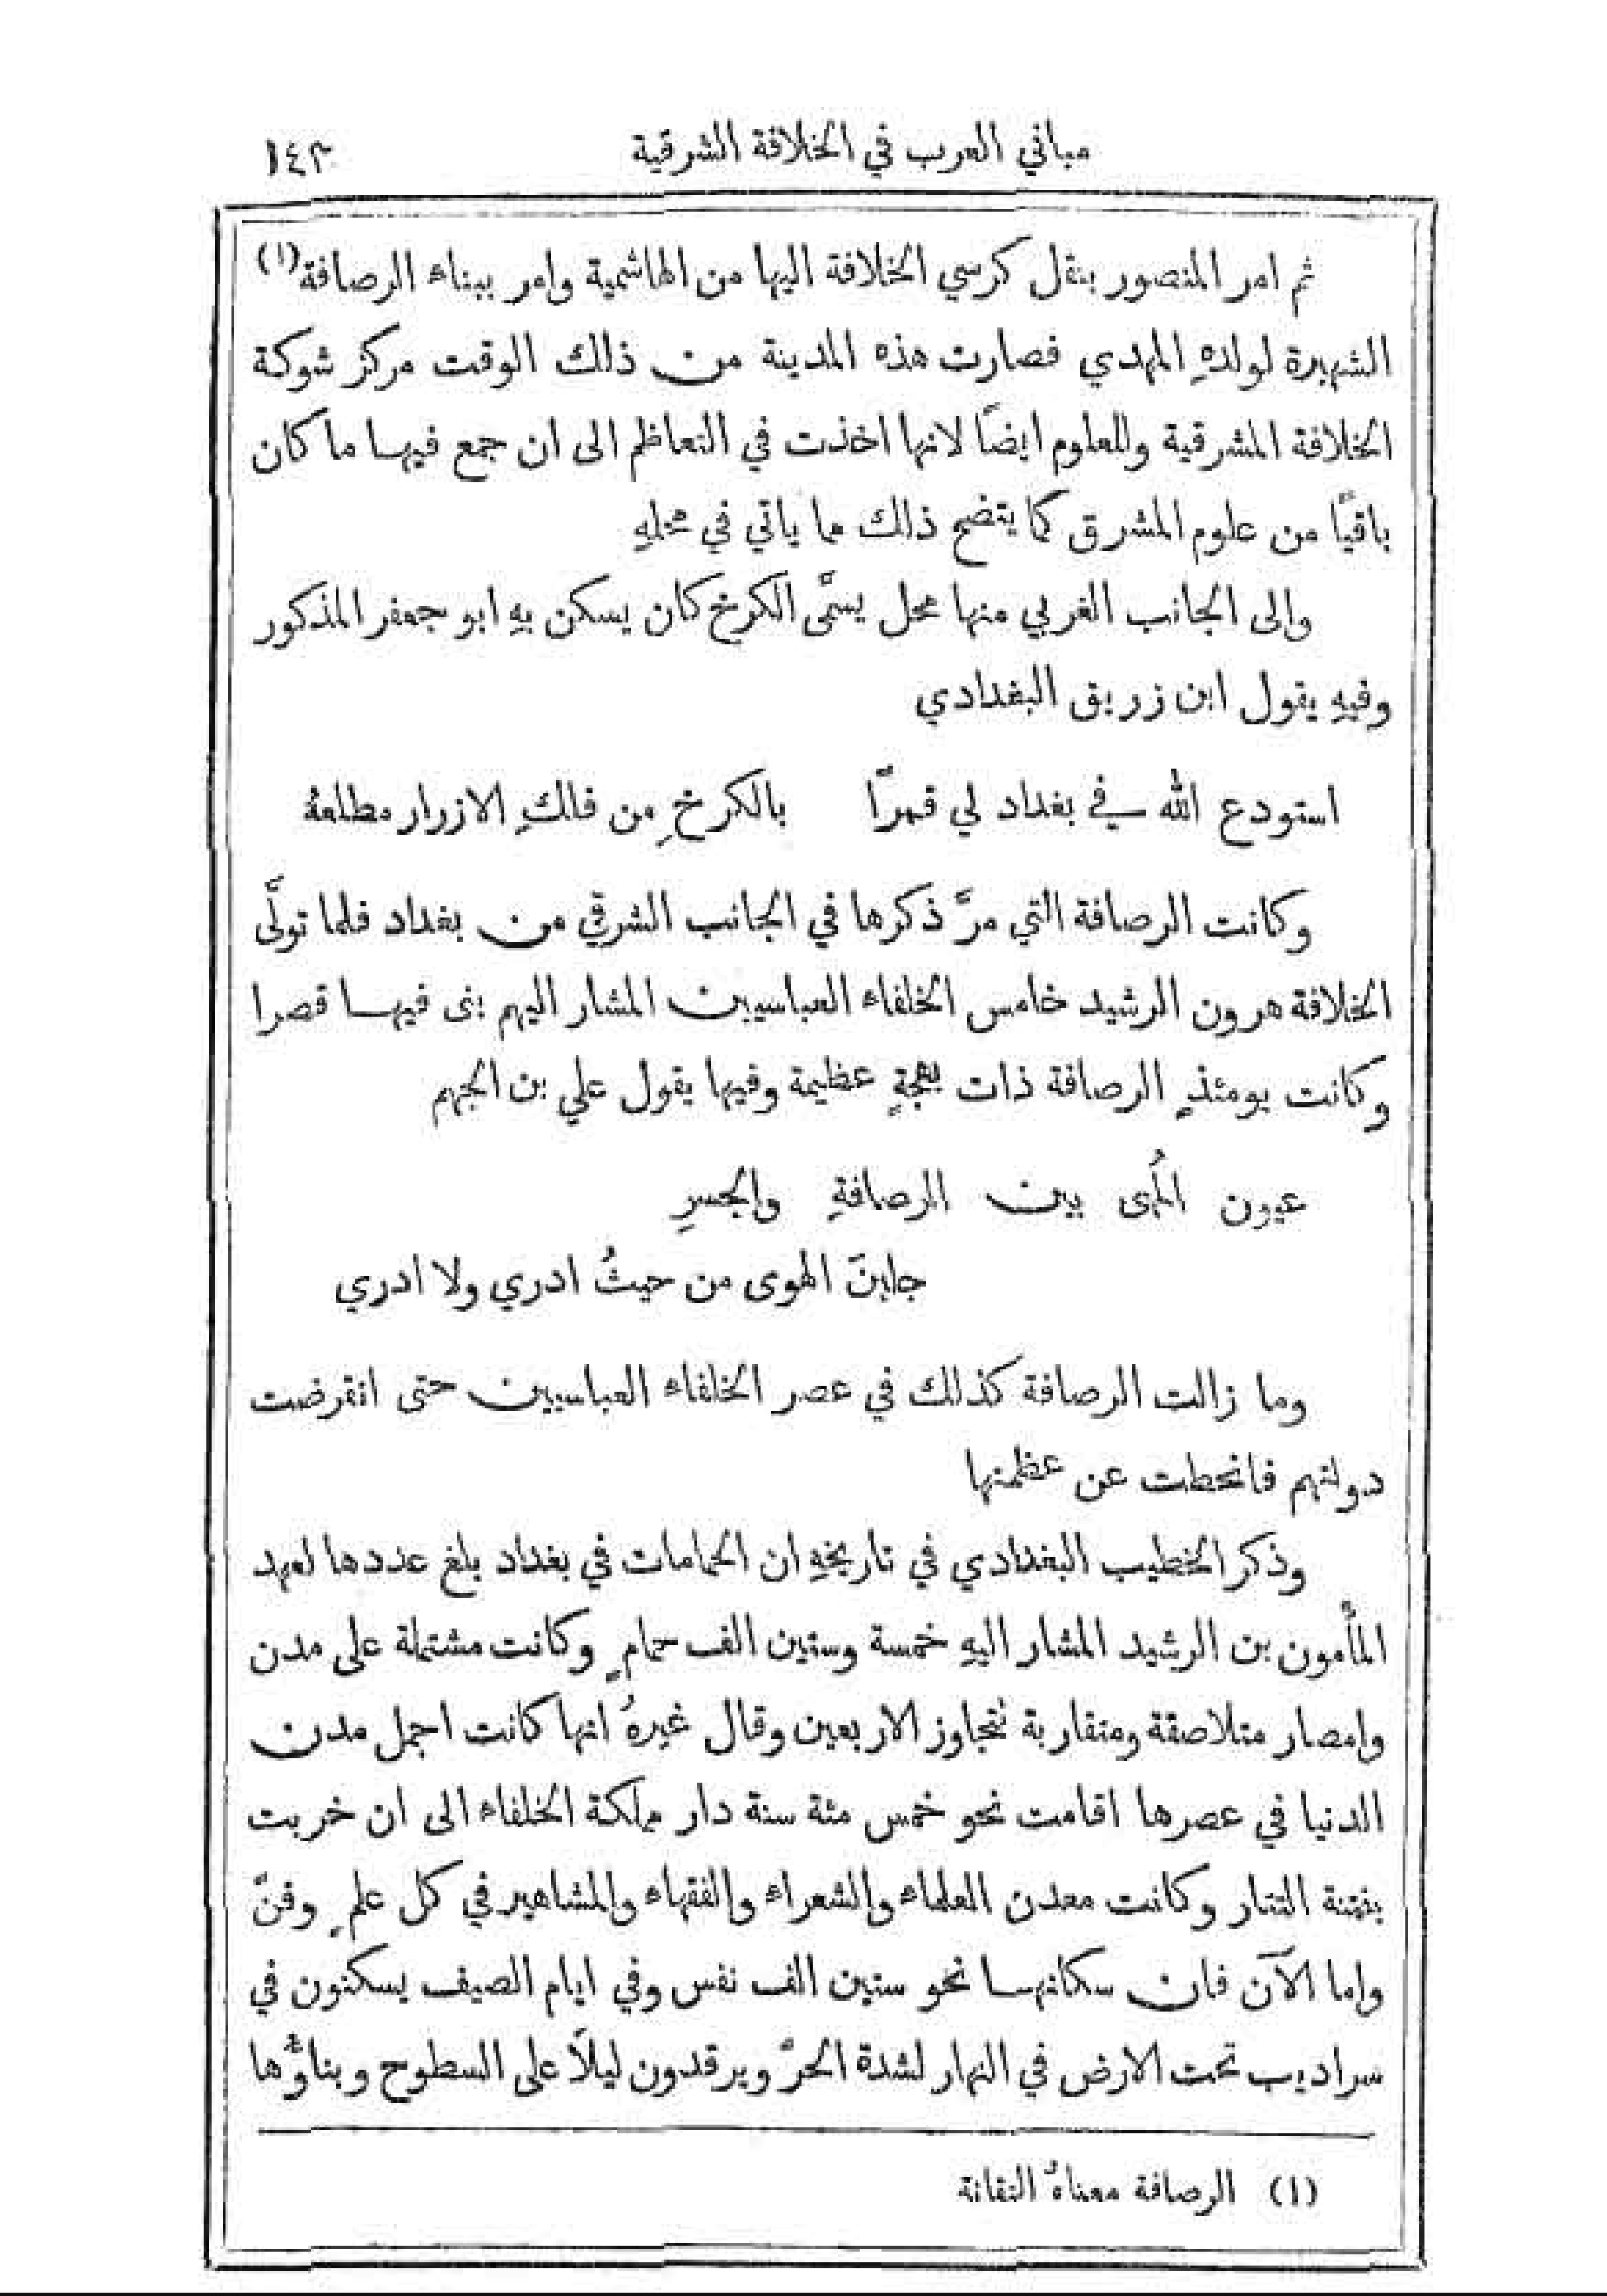 مباني العرب في الخلافة الشرقية ١٤٣
ثم امر المنصور بنقل كرسي الخلافة اليها من الهاشمية وامر ببناء الرصافة(١)
الشهيرة لولدهِ المهدي فصارت هذه المدينة من ذلك الوقت مركز شوكة
الخلافة المشرقية وللعلوم ايضًا لانها اخذت في التعاظم الى ان جمع فيها ما كان
باقيًا من علوم المشرق كما يتضح ذلك مما ياتي في محلهِ
والى الجانب الغربي منها محل يسمَّى الكرخ كان يسكن بهِ ابو جعفر المذكور
وفيهِ يقول ابن زريق البغدادي
استودع الله في بغداد لي قمرًا بالكرخِ من فلكِ الازرار مطلعهُ
وكانت الرصافة التي مرَّ ذكرها في الجانب الشرقي من بغداد فلما تولَّى
الخلافة هرون الرشيد خامس الخلفاء العباسيين المشار اليهم بنى فيها قصرا
وكانت يومئذٍ الرصافة ذات بهجةٍ عظيمة وفيها يقول علي بن الجهم
عيون المُهى بين الرصافةِ والجسرِ
جلبنَ الهوى من حيثُ ادري ولا ادري
وما زالت الرصافة كذلك في عصر الخلفاء العباسيين حتى انقرضت
دولتهم فانحطت عن عظمتها
وذكر الخطيب البغدادي في تاريخهِ ان الحمامات في بغداد بلغ عددها لعهد
المأمون بن الرشيد المشار اليهِ خمسة وستين الف حمامٍ وكانت مشتملة على مدن
وامصار متلاصقة ومتقاربة تتجاوز الاربعين وقال غيرهُ انها كانت اجمل مدن
الدنيا في عصرها اقامت نحو خمس مئة سنة دار مملكة الخلفاء الى ان خربت
بفتنة التتار وكانت معدن العلماء والشعراء والفقهاء والمشاهير في كل علمٍ وفنّ
واما الآن فان سكانها نحو ستين الف نفس وفي ايام الصيف يسكنون في
سراديب تحت الارض في النهار لشدة الحرّ ويرقدون ليلًا على السطوح وبناؤُها
(١) الرصافة معناهُ التقانة